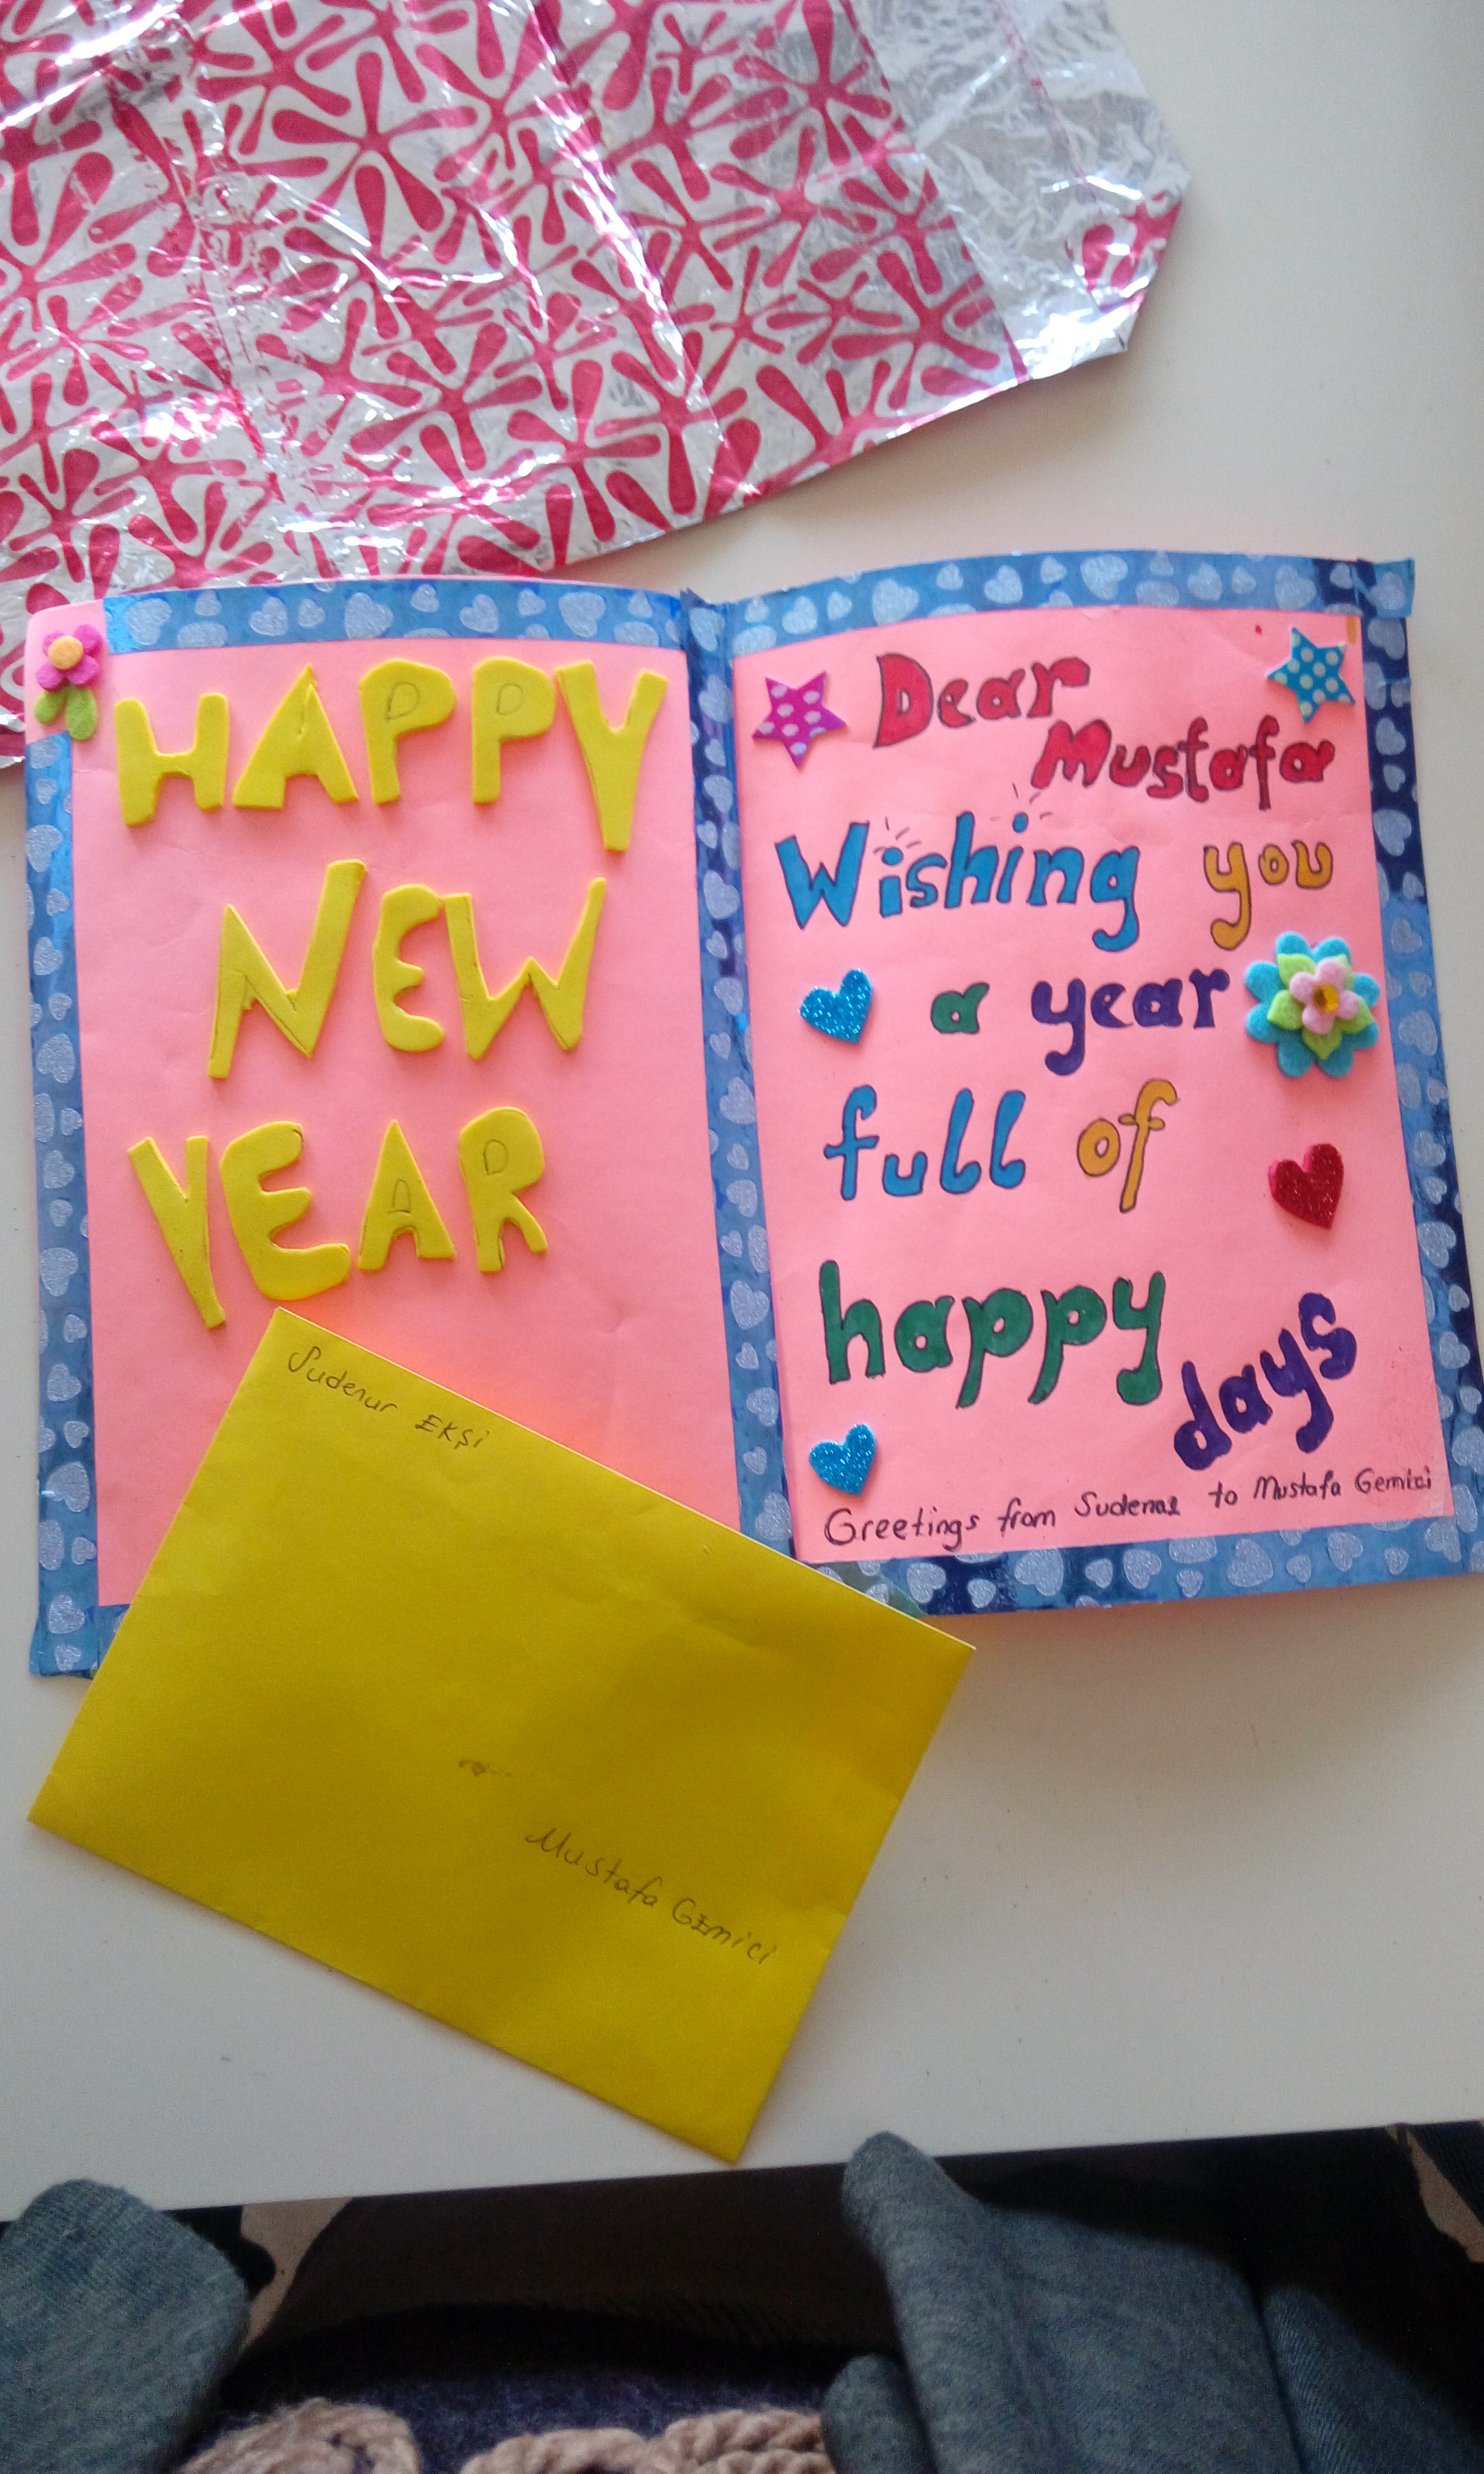 HAPPY
NEW
YEAR
Dear
Mustafa
Wishing you
a year
full of
happy
days
Greetings from Sudenaz to Mustafa Gemici
Sudenur EKŞi
Mustafa GEmici